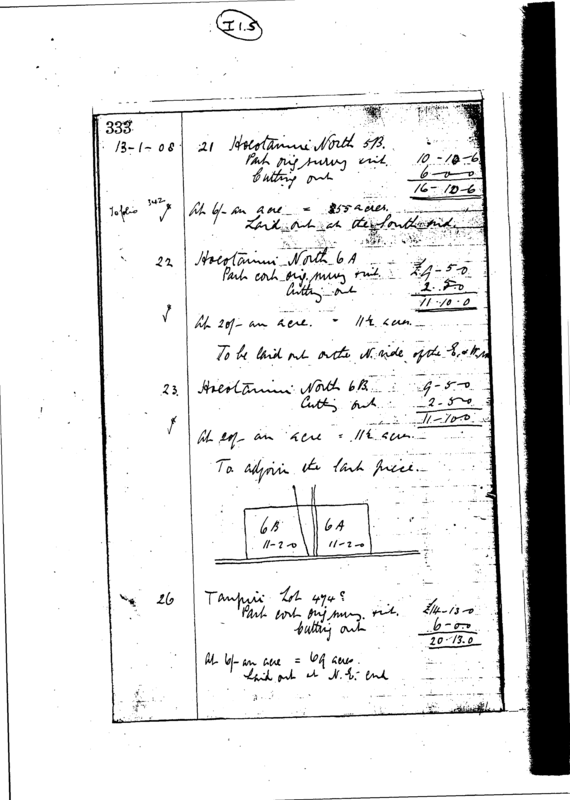 I 1.5
333
13-1-08 21 Hoeotainui North 5B.
Part orig survey 10-10-6
Cutting out 6-0-0
16-10-6
To folio 342
At 6/- an acre = 55 acres
Laid out at the South end.
22 Hoeotainui North 6A
Part cost orig. survey £9-5-0
Cutting out 2-5-0
11.10.0
At 20/- an acre. = 11½ acres
To be laid out on the N. side of the
23. Hoeotainui North 6B 9-5-0
Cutting out 2-5-0
11-10-0
At 20/- an acre = 11½ acres
To adjoin the last piece.
6B 6A
11-2-0 11-2-0
26 Taupiri Lot 474
Part cost orig survey £14-13-0
Cutting out 6-0-0
20.13.0
At 6/- an acre = 69 acres.
Laid out at N.E. end